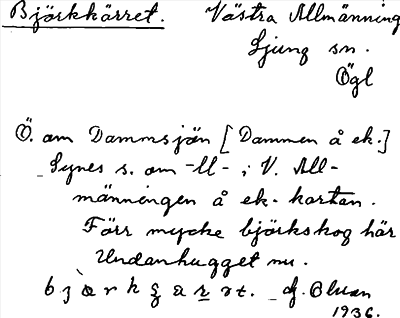 Björkkärret. Västra Allmänning
Ljung sn.
Ögl
Ö. om Dammsjön [Dammen å ek.]
Synes s. om -ll- i V. All-
männingen å ek-kartan.
Förr mycke björkskog här
Undanhugget nu.
1936.